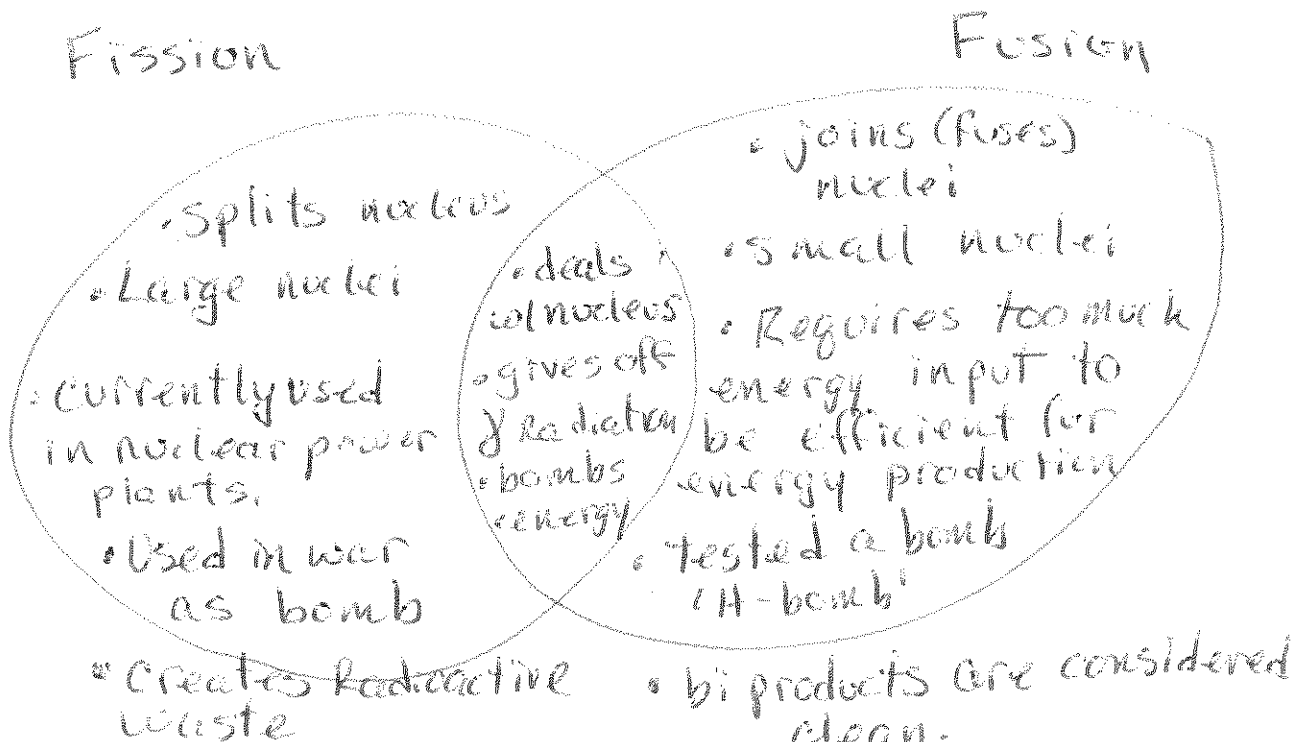 Fission
Fusion
• Splits nucleus
• Large nuclei
• Currently used
in nuclear power
plants.
• Used in war
as bomb
• Creates Radioactive
Waste
• deals
w/ nucleus
• gives off
γ Radiation
• bombs
• energy
• joins (fuses)
nuclei
• small nuclei
• Requires too much
energy input to
be efficient for
energy production
• tested a bomb
'H-bomb'
• bi products are considered
clean.